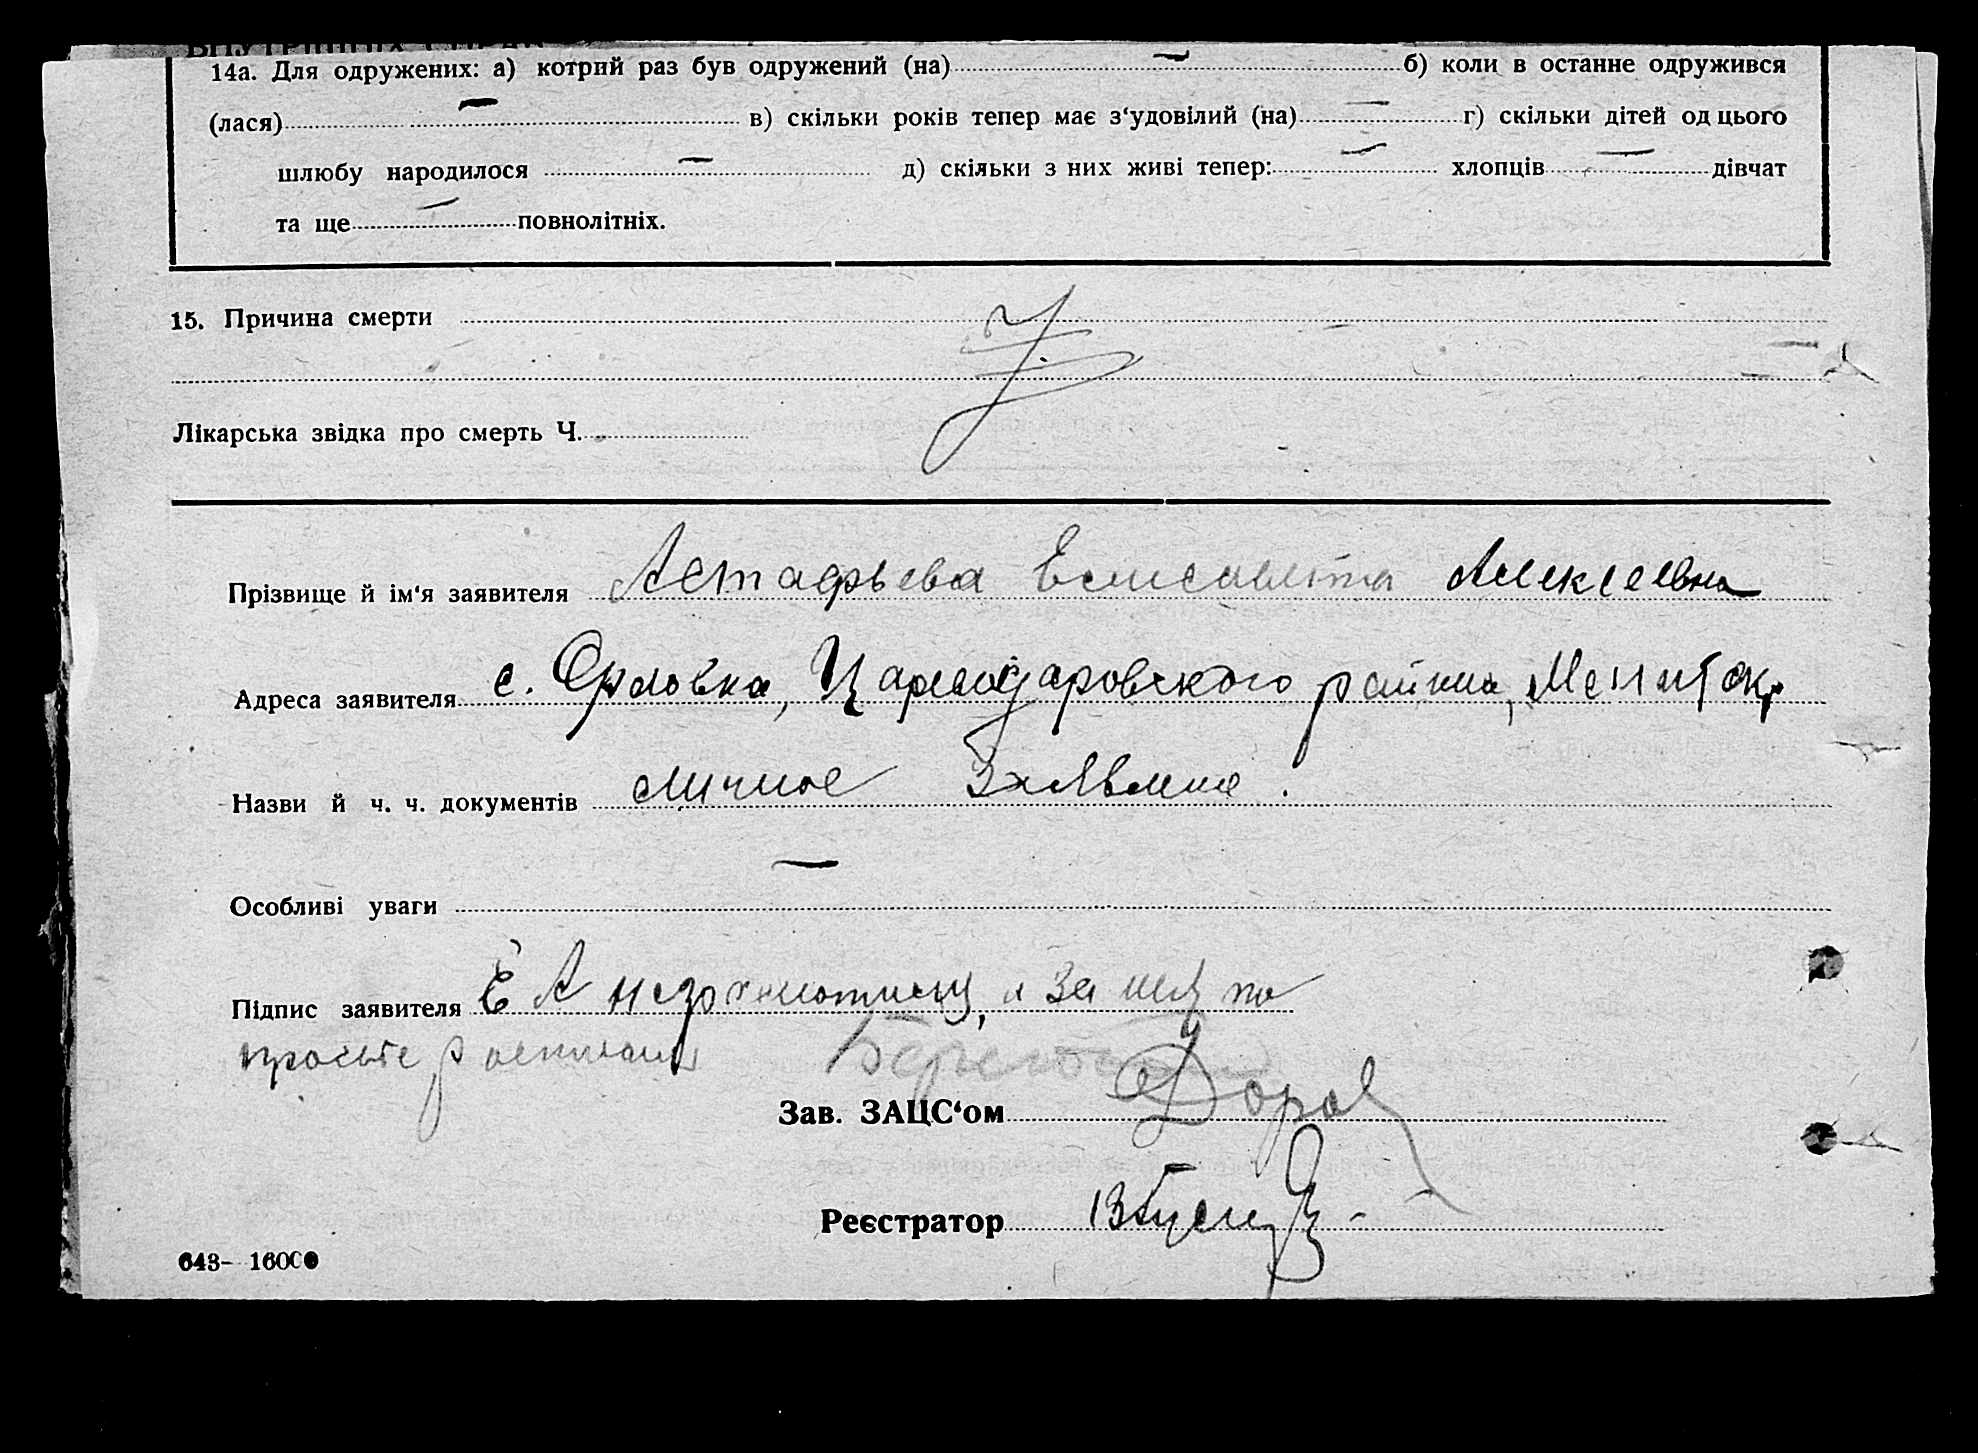 14а. Для одружених: а) котрий раз був одружений (на) — б) коли в останне одружився
(лася) — в) скільки років тепер має з‘удовілий (на) — г) скільки дітей од цього
шлюбу народилося — д) скільки з них живі тепер: — хлопців — дівчат
та ще — повнолітніх.
15. Причина смерти
Лікарська звідка про смерть Ч.
Прізвище й ім‘я заявителя Астафьева Елисавета Алексеевна
Адреса заявителя с. Орловка, района, Мелит окр
Назви й ч. ч. документів личное Заявление.
Особливі уваги —
Підпис заявителя Е А а за
Зав. ЗАЦС‘ом
Реєстратор
643– 16000